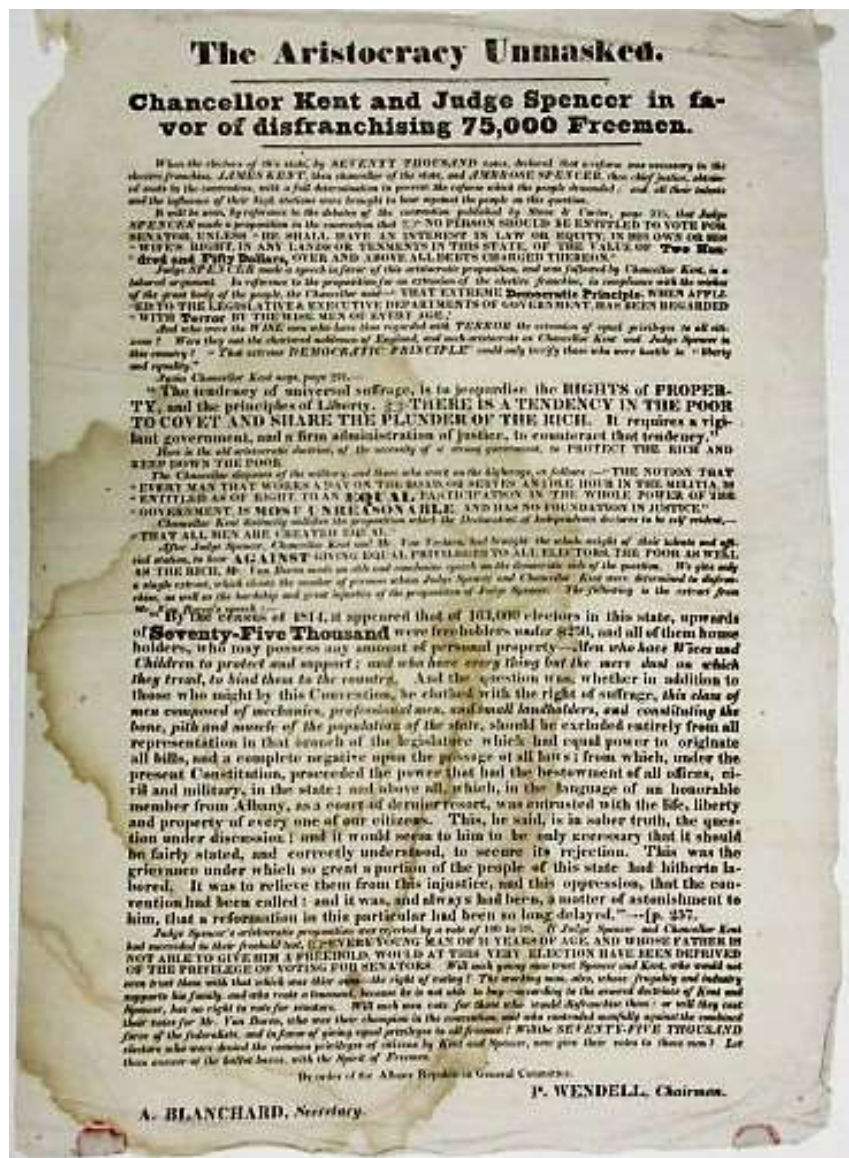 The Aristocracy Unmasked.
Chancellor Kent and Judge Spencer in fa-
vor of disfranchising 75,000 Freemen.
When the electors of this state, by SEVENTY THOUSAND votes, declared that a reform was necessary in the
elective franchise, JAMES KENT, then chancellor of the state, and AMBROSE SPENCER, then chief justice, obtain-
ed seats in the convention, with a full determination to prevent the reform which the people demanded: and all their talents
and the influence of their high stations were brought to bear against the people on this question.
It will be seen, by reference to the debates of the convention published by & Carter, page 215, that Judge
SPENCER made a proposition in the convention that NO PERSON SHOULD BE ENTITLED TO VOTE FOR
SENATOR, UNLESS "HE SHALL HAVE AN INTEREST IN LAW OR EQUITY, IN HIS OWN OR HIS
"WIFE'S RIGHT, IN ANY LANDS OR TENMENTS IN THIS STATE, OF THE VALUE OF Two Hun-
"dred and Fifty Dollars, OVER AND ABOVE ALL DEBTS CHARGED THEREON."
Judge SPENCER made a speech in favor of this aristocratic proposition, and was followed by Chancellor Kent, in a
labored argument. In reference to the proposition for an extension of the elective franchise, in compliance with the wishes
of the great body of the people, the Chancellor said— THAT EXTREME Democratic Principle, WHEN APPLI-
"ED TO THE LEGISLATIVE & EXECUTIVE DEPARTMENTS OF GOVERNMENT, HAS BEEN REGARDED
"WITH Terror BY THE WISE MEN OF EVERY AGE."
And who were the WISE men who have thus regarded with TERROR the extension of equal privileges to all citi-
zens? Were they not the chartered noblemen of England, and such aristocrats as Chancellor Kent and Judge Spencer in
this country? "That extreme DEMOCRATIC PRINCIPLE" could only terrify those who were hostile to "liberty
and equality."
Again Chancellor Kent says, page 221,—
"The tendency of universal suffrage, is to jeopardise the RIGHTS of PROPER-
TY, and the principles of Liberty. THERE IS A TENDENCY IN THE POOR
TO COVET AND SHARE THE PLUNDER OF THE RICH. It requires a vigi-
lant government, and a firm administration of justice, to counteract that tendency."
Here is the old aristocratic doctrine, of the necessity of a strong government, to PROTECT THE RICH AND
KEEP DOWN THE POOR.
The Chancellor disposes of the military, and those who work on the highways, as follows:—"THE NOTION THAT
"EVERY MAN THAT WORKS A DAY ON THE ROAD, OR SERVES AN IDLE HOUR IN THE MILITIA, IS
"ENTITLED AS OF RIGHT TO AN EQUAL PARTICIPATION IN THE WHOLE POWER OF THE
"GOVERNMENT, IS MOST UNREASONABLE AND HAS NO FOUNDATION IN JUSTICE."
Chancellor Kent distinctly the proposition which the Declaration of Independence declares to be self evident,—
"THAT ALL MEN ARE CREATED EQUAL."
After Judge Spencer, Chancellor Kent and Mr. Van had brought the whole weight of their talents and offi-
cial station, to bear AGAINST GIVING EQUAL PRIVILEGES TO ALL ELECTORS, THE POOR AS WELL
AS THE RICH, Mr. Van Buren made an able and conclusive speech on the democratic side of the question. We give only
a single extract, which shows the number of persons whom Judge Spencer and Chancellor Kent were determined to disfran-
chise, as well as the hardship and great injustice of the proposition of Judge Spencer. The following is the extract from
Mr. Van Buren's speech:—
"By the census of 1814, it appeared that of 163,000 electors in this state, upwards
of Seventy-Five Thousand were freeholders under $250, and all of them house
holders, who may possess any amount of personal property—Men who have Wives and
Children to protect and support; and who have every thing but the mere dust on which
they tread, to bind them to the country. And the question was, whether in addition to
those who might by this Convention, be clothed with the right of suffrage, this class of
men composed of mechanics, professional men, and small landholders, and constituting the
bone, pith and muscle of the population of the state, should be excluded entirely from all
representation in that branch of the legislature which had equal power to originate
all bills, and a complete negative upon the passage of all laws; from which, under the
present Constitution, proceeded the power that had the bestowment of all offices, ci-
vil and military, in the state; and above all, which, in the language of an honorable
member from Albany, as a court of dernier resort, was entrusted with the life, liberty
and property of every one of our citizens. This, he said, is in sober truth, the ques-
tion under discussion; and it would seem to him to be only necessary that it should
be fairly stated, and correctly understood, to secure its rejection. This was the
grievance under which so great a portion of the people of this state had hitherto la-
bored. It was to relieve them from this injustice, and this oppression, that the con-
vention had been called; and it was, and always had been, a matter of astonishment to
him, that a reformation in this particular had been so long delayed."—[p. 257.
Judge Spencer's aristocratic proposition was rejected by a vote of 100 to 19. If Judge Spencer and Chancellor Kent
had succeeded in their freehold test, EVERY YOUNG MAN OF 21 YEARS OF AGE, AND WHOSE FATHER IS
NOT ABLE TO GIVE HIM A FREEHOLD, WOULD AT THIS VERY ELECTION HAVE BEEN DEPRIVED
OF THE PRIVILEGE OF VOTING FOR SENATORS. Will such young men trust Spencer and Kent, who would not
even trust them with that which was their the right of voting? The working man, also, whose frugality and industry
supports his family, and who rents a tenement, because he is not able to buy—according to the avowed doctrines of Kent and
Spencer, has no right to vote for senators. Will such men vote for those who would disfranchise them: or will they cast
their votes for Mr. Van Buren, who was their champion in the convention, and who contended manfully against the combined
force of the federalists, and in favor of giving equal privileges to all freemen? Will the SEVENTY-FIVE THOUSAND
electors who were denied the common privileges of citizens by Kent and Spencer, now give their votes to those men? Let
them answer at the ballot boxes, with the Spirit of Freemen.
By order of the Albany Republican General Committee.
P. WENDELL, Chairman.
A. BLANCHARD, Secretary.